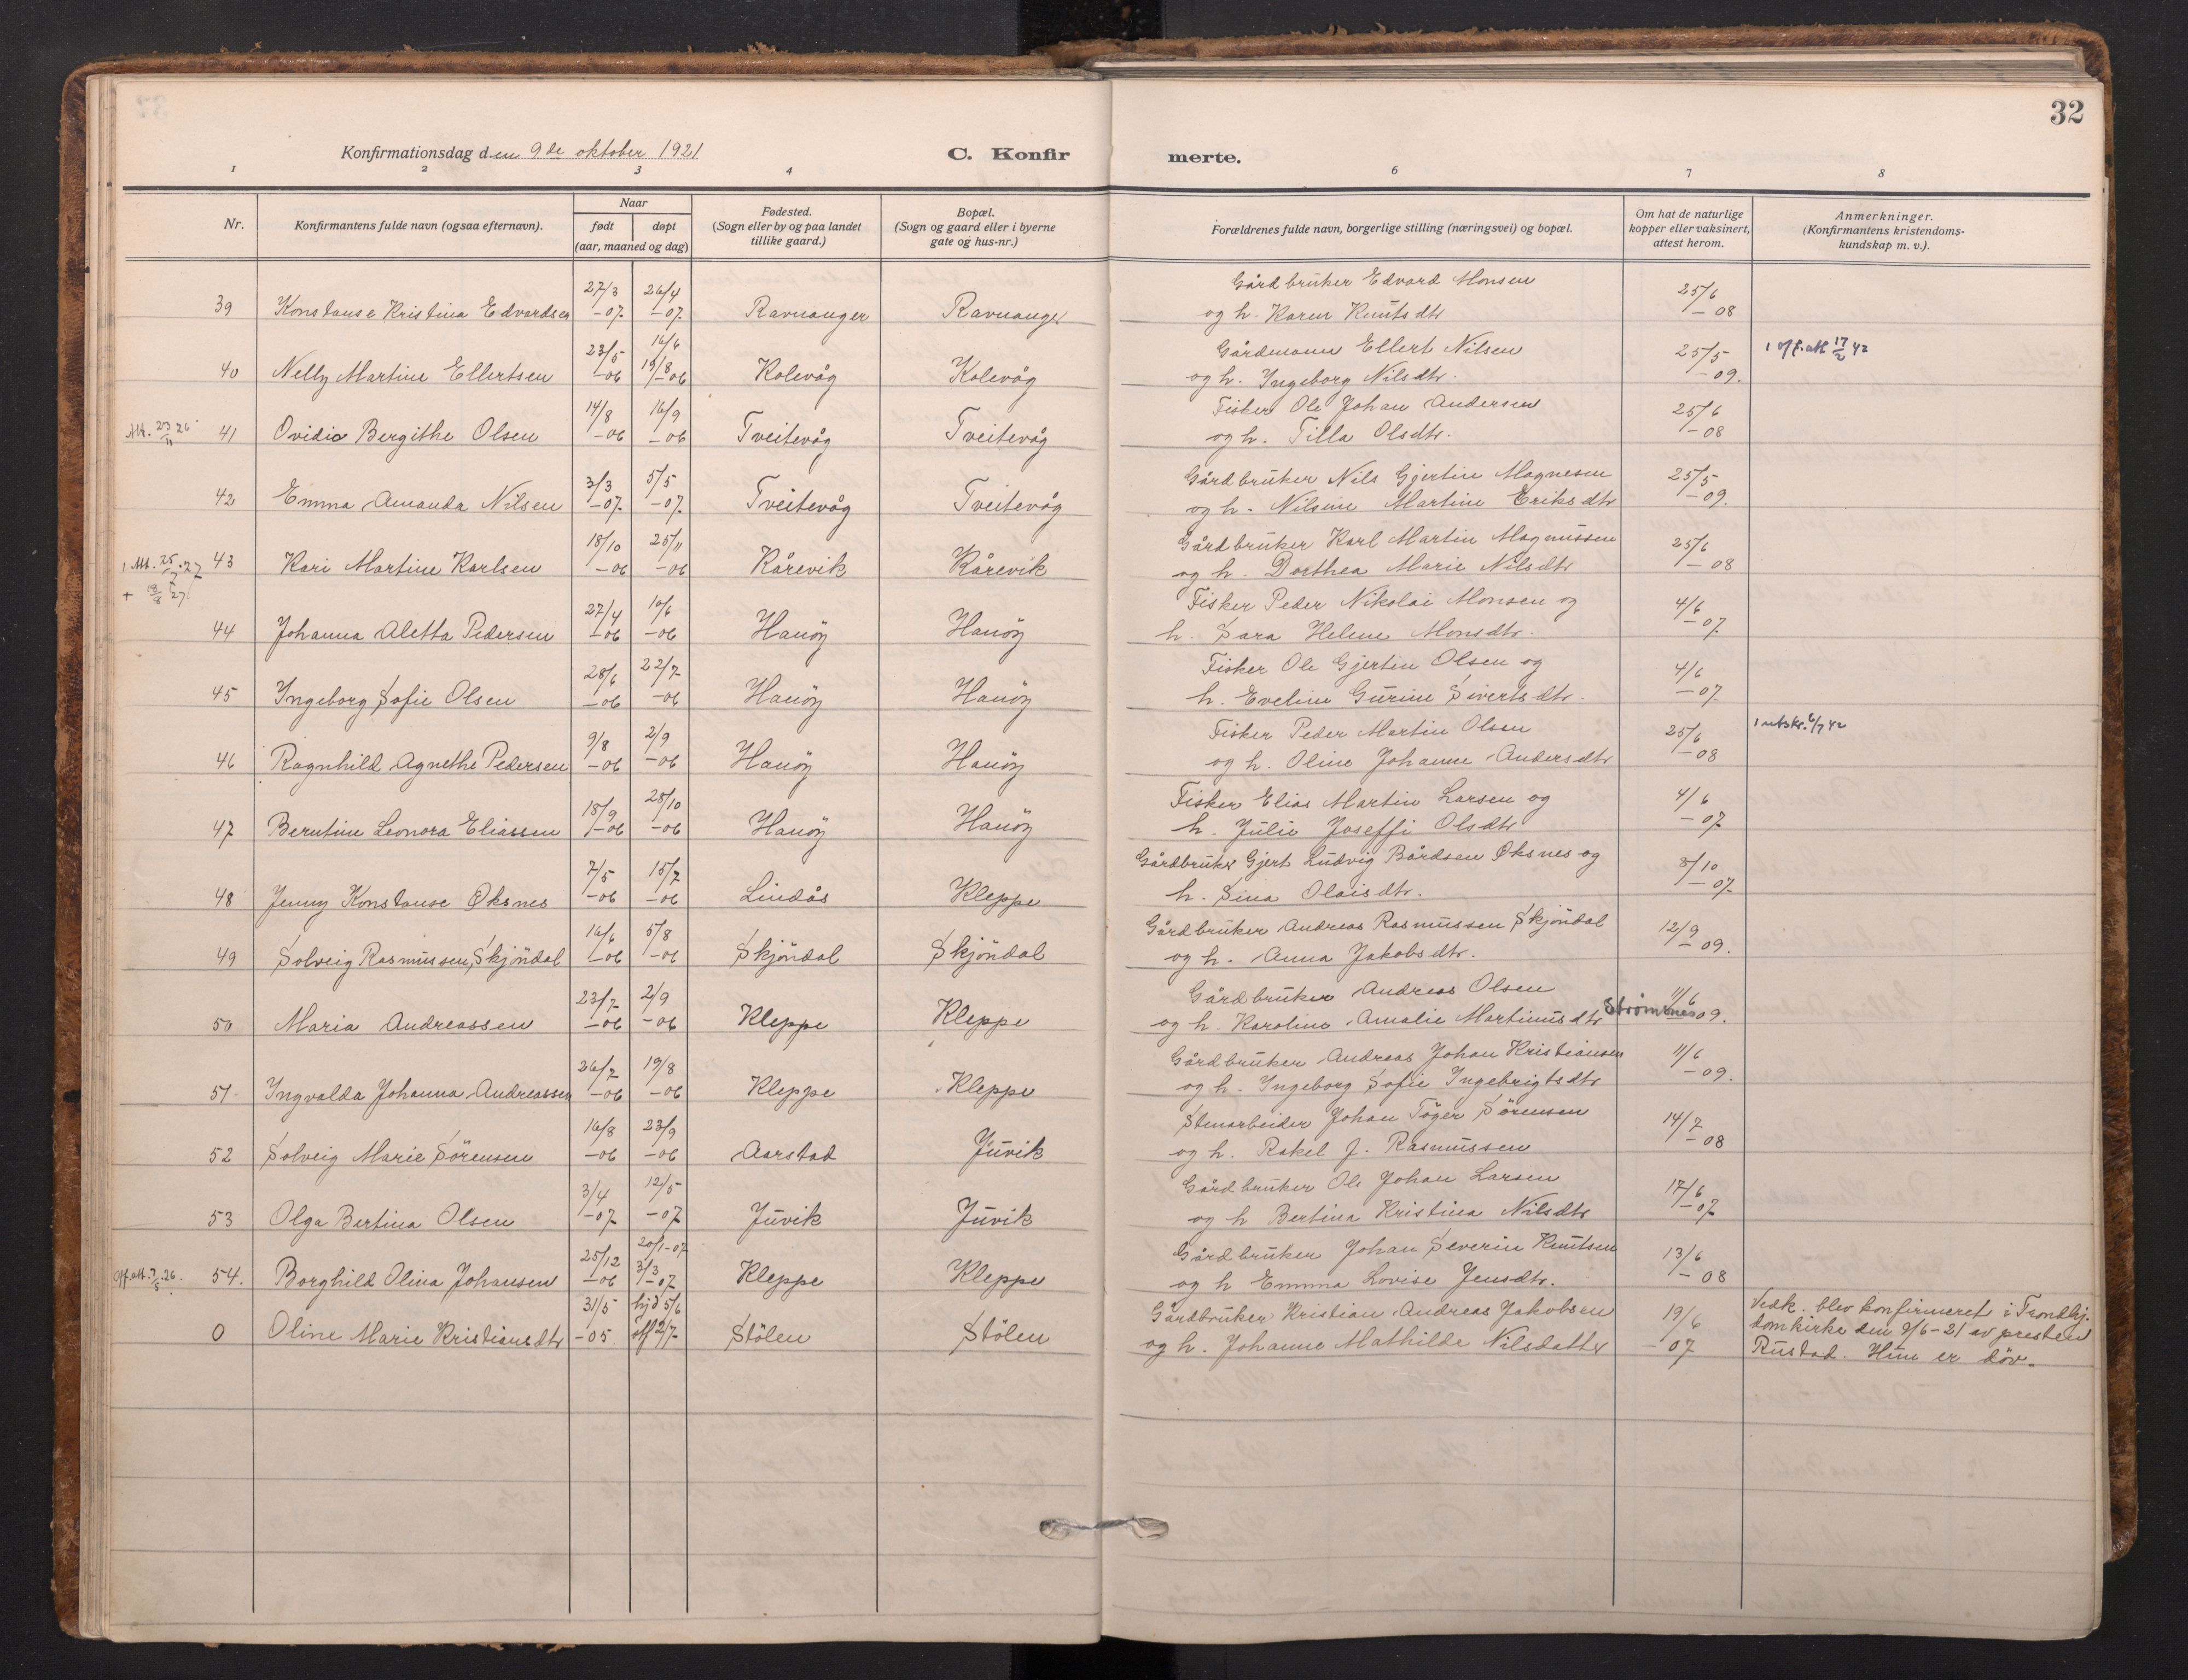 32
Konfirmationsdag den 9de oktober 1921
C. Konfirmerte.
1 2 3 4 6 7 8
Nr.
Konfirmantens fulde navn (ogsaa efternavn).
Naar
født døpt
(aar, maaned og dag)
Fødested.
(Sogn eller by og paa landet
tillike gaard.)
Bopæl.
(Sogn og gaard eller i byerne
gate og hus-nr.)
Forældrenes fulde navn, borgerlige stilling (næringsvei) og bopæl.
Om hat de naturlige
kopper eller vaksinert,
attest herom.
Anmerkninger.
(Konfirmantens kristendoms-
kundskap m. v.).
27/3 26/4 Gårdbruker Edvard Monsen 25/6
39 Konstanse Kristina Edvardsen -07 -07 Ravnanger Ravnanger og h. Karen Knutsdtr -08
23/5 16/6 Gårdmann Ellert Nilsen 25/5 1 off. att 17/2 42
40 Nelly Martine Ellertsen -06 19/8-06 Kolevåg Kolevåg og h. Ingeborg Nilsdtr. -09.
14/8 16/9 Fisker Ole Johan Andersen 25/6
Att. 23/11 26 41 Ovidia Bergithe Olsen -06 -06 Tveitevåg Tveitevåg og h. Tilla Olsdtr. -08
3/3 5/5 Gårdbruker Nils Gjertin Magnesen 25/5
42 Emma Amanda Nilsen -07 -07 Tveitevåg Tveitevåg og h. Nilsine Martine Eriksdtr -09.
18/10 25/11 Gårdbruker Karl Martin Magnussen 25/6
1 Att. 25/7.27 43 Kari Martine Karlsen -06 -06 Kårevik Kårevik og h. Dorthea Marie Nilsdtr -08
+ 18/8 27
27/4 10/6 Fisker Peder Nikolai Monsen og 4/6
44 Johanna Aletta Pedersen -06 -06 Hanöy Hanöy h. Sara Helene Monsdtr. -07
28/6 22/7 Fisker Ole Gjertin Olsen og 4/6
45 Ingeborg Sofie Olsen -06 -06 Hanöy Hanöy h. Eveline Gurine Sivertsdtr. -07
9/8 2/9 Fisker Peder Martin Olsen 25/6 1 utskr. 6/7 42
46 Ragnhild Agnethe Pedersen -06 -06 Hanöy Hanöy og h. Oline Johanne Andersdtr -08
18/9 28/10 Fisker Elias Martin Larsen og 4/6
47 Berntine Leonora Eliassen -06 -06 Hanöy Hanöy h. Julie Joseffi Olsdtr -07
7/5 15/7 Gårdbruker Gjert Ludvig Bårdsen Øksnes og 8/10
48 Jenny Konstanse Øksnes -06 -06 Lindås Kleppe h. Sina Olaisdtr. -07
16/6 5/8 Gårdbruker Andreas Rasmussen Skjöndal 12/9
49 Solveig Rasmussen, Skjöndal -06 -06 Skjöndal Skjöndal og h. Anna Jakobsdtr. -09.
23/7 2/9 Gårdbruker Andreas Olsen 11/6
50 Maria Andreassen -06 -06 Kleppe Kleppe og h. Karoline Amalie Martinusdtr Strømsnes -09.
26/7 19/8 Gårdbruker Andreas Johan Kristiansen 11/6
51 Ingvalda Johanna Andreassen -06 -06 Kleppe Kleppe og h. Ingeborg Sofie Ingebrigtsdtr -09.
16/8 23/9 Stenarbeider Johan Töger Sörensen 14/7
52 Solveig Marie Sörensen -06 -06 Aarstad Juvik og h. Rakel J. Rasmussen -08
3/4 12/5 Gårdbruker Ole Johan Larsen 17/6
53 Olga Bertina Olsen -07 -07 Juvik Juvik og h Bertina Kristina Nilsdtr -07
25/12 20/1-07 Gårdbruker Johan Severin Knutsen 13/6
Off. att. 7/5.26. 54. Borghild Olina Johansen -06 3/3-07 Kleppe Kleppe og h Emma Lovise Jensdtr. -08
31/5 hjd 5/6 Gårdbruker Kristian Andreas Jakobsen 19/6 Vedk. blev konfirmeret i Trondhj.
0 Oline Marie Kristiansdtr -05 off 2/7 Stölen Stölen og h. Johanne Mathilde Nilsdatter -07 domkirke den 9/6-21 av presten
Rustad. Hun er döv.